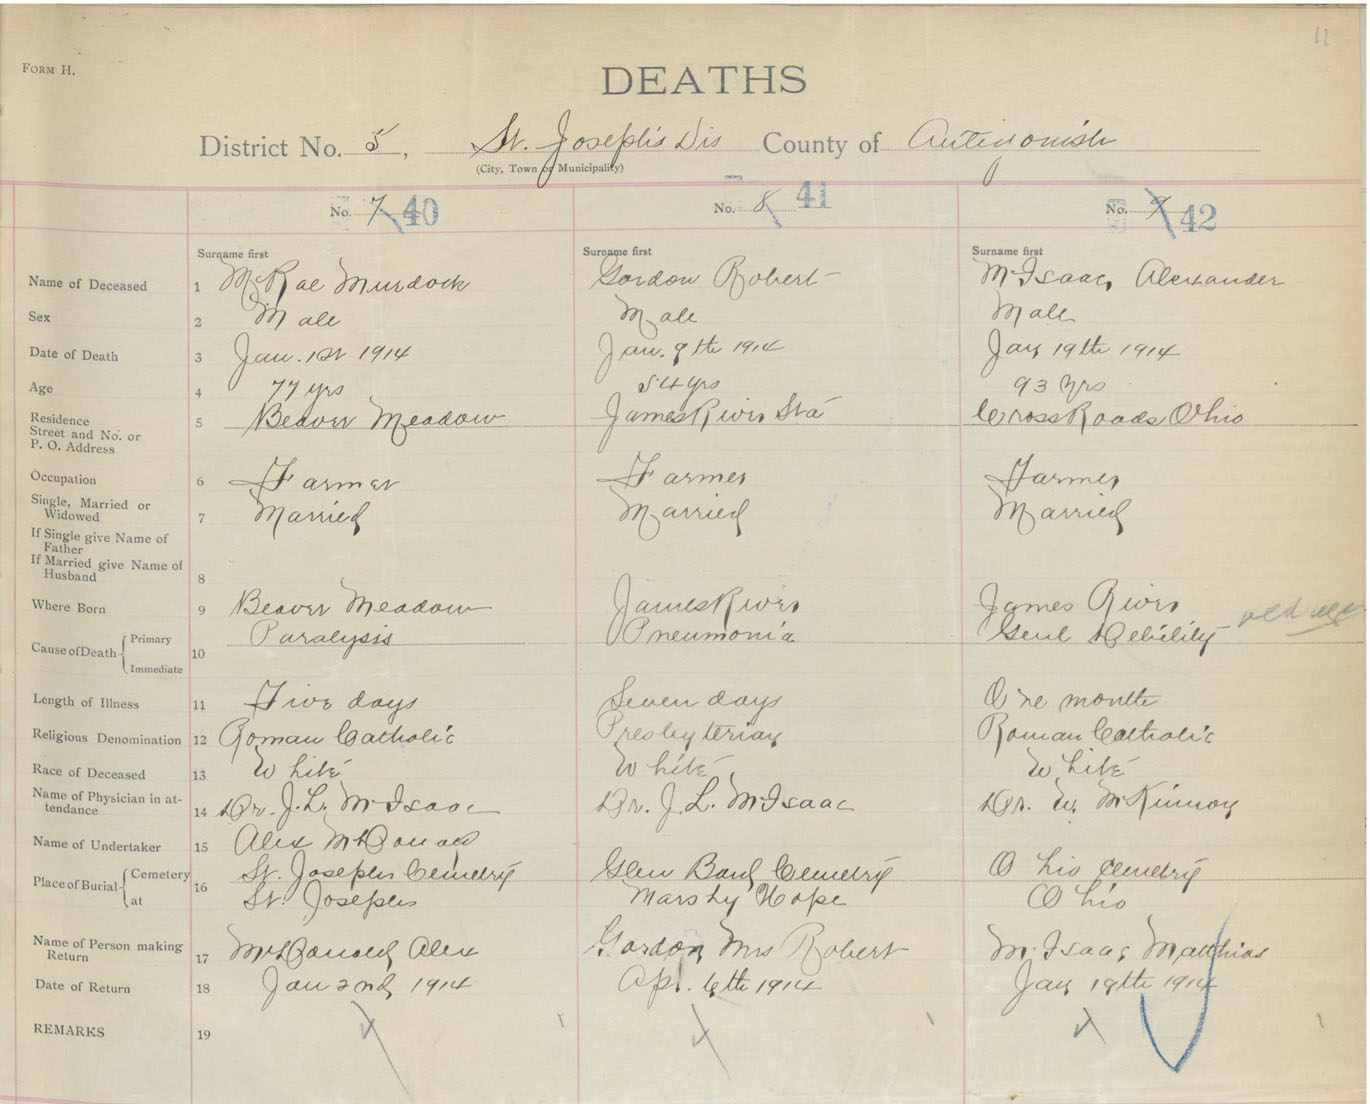 11
FORM H.
DEATHS
District No. 5, St. Josephs Dis County of Antigonish
(City, Town or Municipality)
No. 7 40 No. 8 41 No. 9 42
Surname first Surname first Surname first
Name of Deceased 1 McRae Murdock Gordon Robert McIsaac, Alexander
Sex 2 Male Male Male
Date of Death 3 Jan. 1st 1914 Jan. 9th 1914 Jan 19th 1914
Age 4 77 yrs 54 yrs 93 yrs
Residence
Street and No. or
P. O. Address 5 Beaver Meadow James River Sta Cross Roads Ohio
Occupation 6 Farmer Farmer Farmer
Single, Married or
Widowed 7 Married Married Married
If Single give Name of
Father
If Married give Name of
Husband 8
Where Born 9 Beaver Meadow James River James River
Cause of Death Primary 10 Paralysis Pneumonia Genl Debility old age
Immediate
Length of Illness 11 Five days Seven days One month
Religious Denomination 12 Roman Catholic Presbyterian Roman Catholic
Race of Deceased 13 White White White
Name of Physician in at-
tendance 14 Dr. J. L. McIsaac Dr. J. L. McIsaac Dr. W. McKinnon
Name of Undertaker 15 Alex McDonald
Place of Burial Cemetery 16 St. Josephs Cemetry Glen Bard Cemetry Ohio Cemetry
at St. Josephs Marshy Hope Ohio
Name of Person making
Return 17 McDonald, Alex Gordon, Mrs Robert McIsaac Matthias
Date of Return 18 Jan 2nd, 1914 Apr. 6th 1914 Jan 19th 1914
REMARKS 19